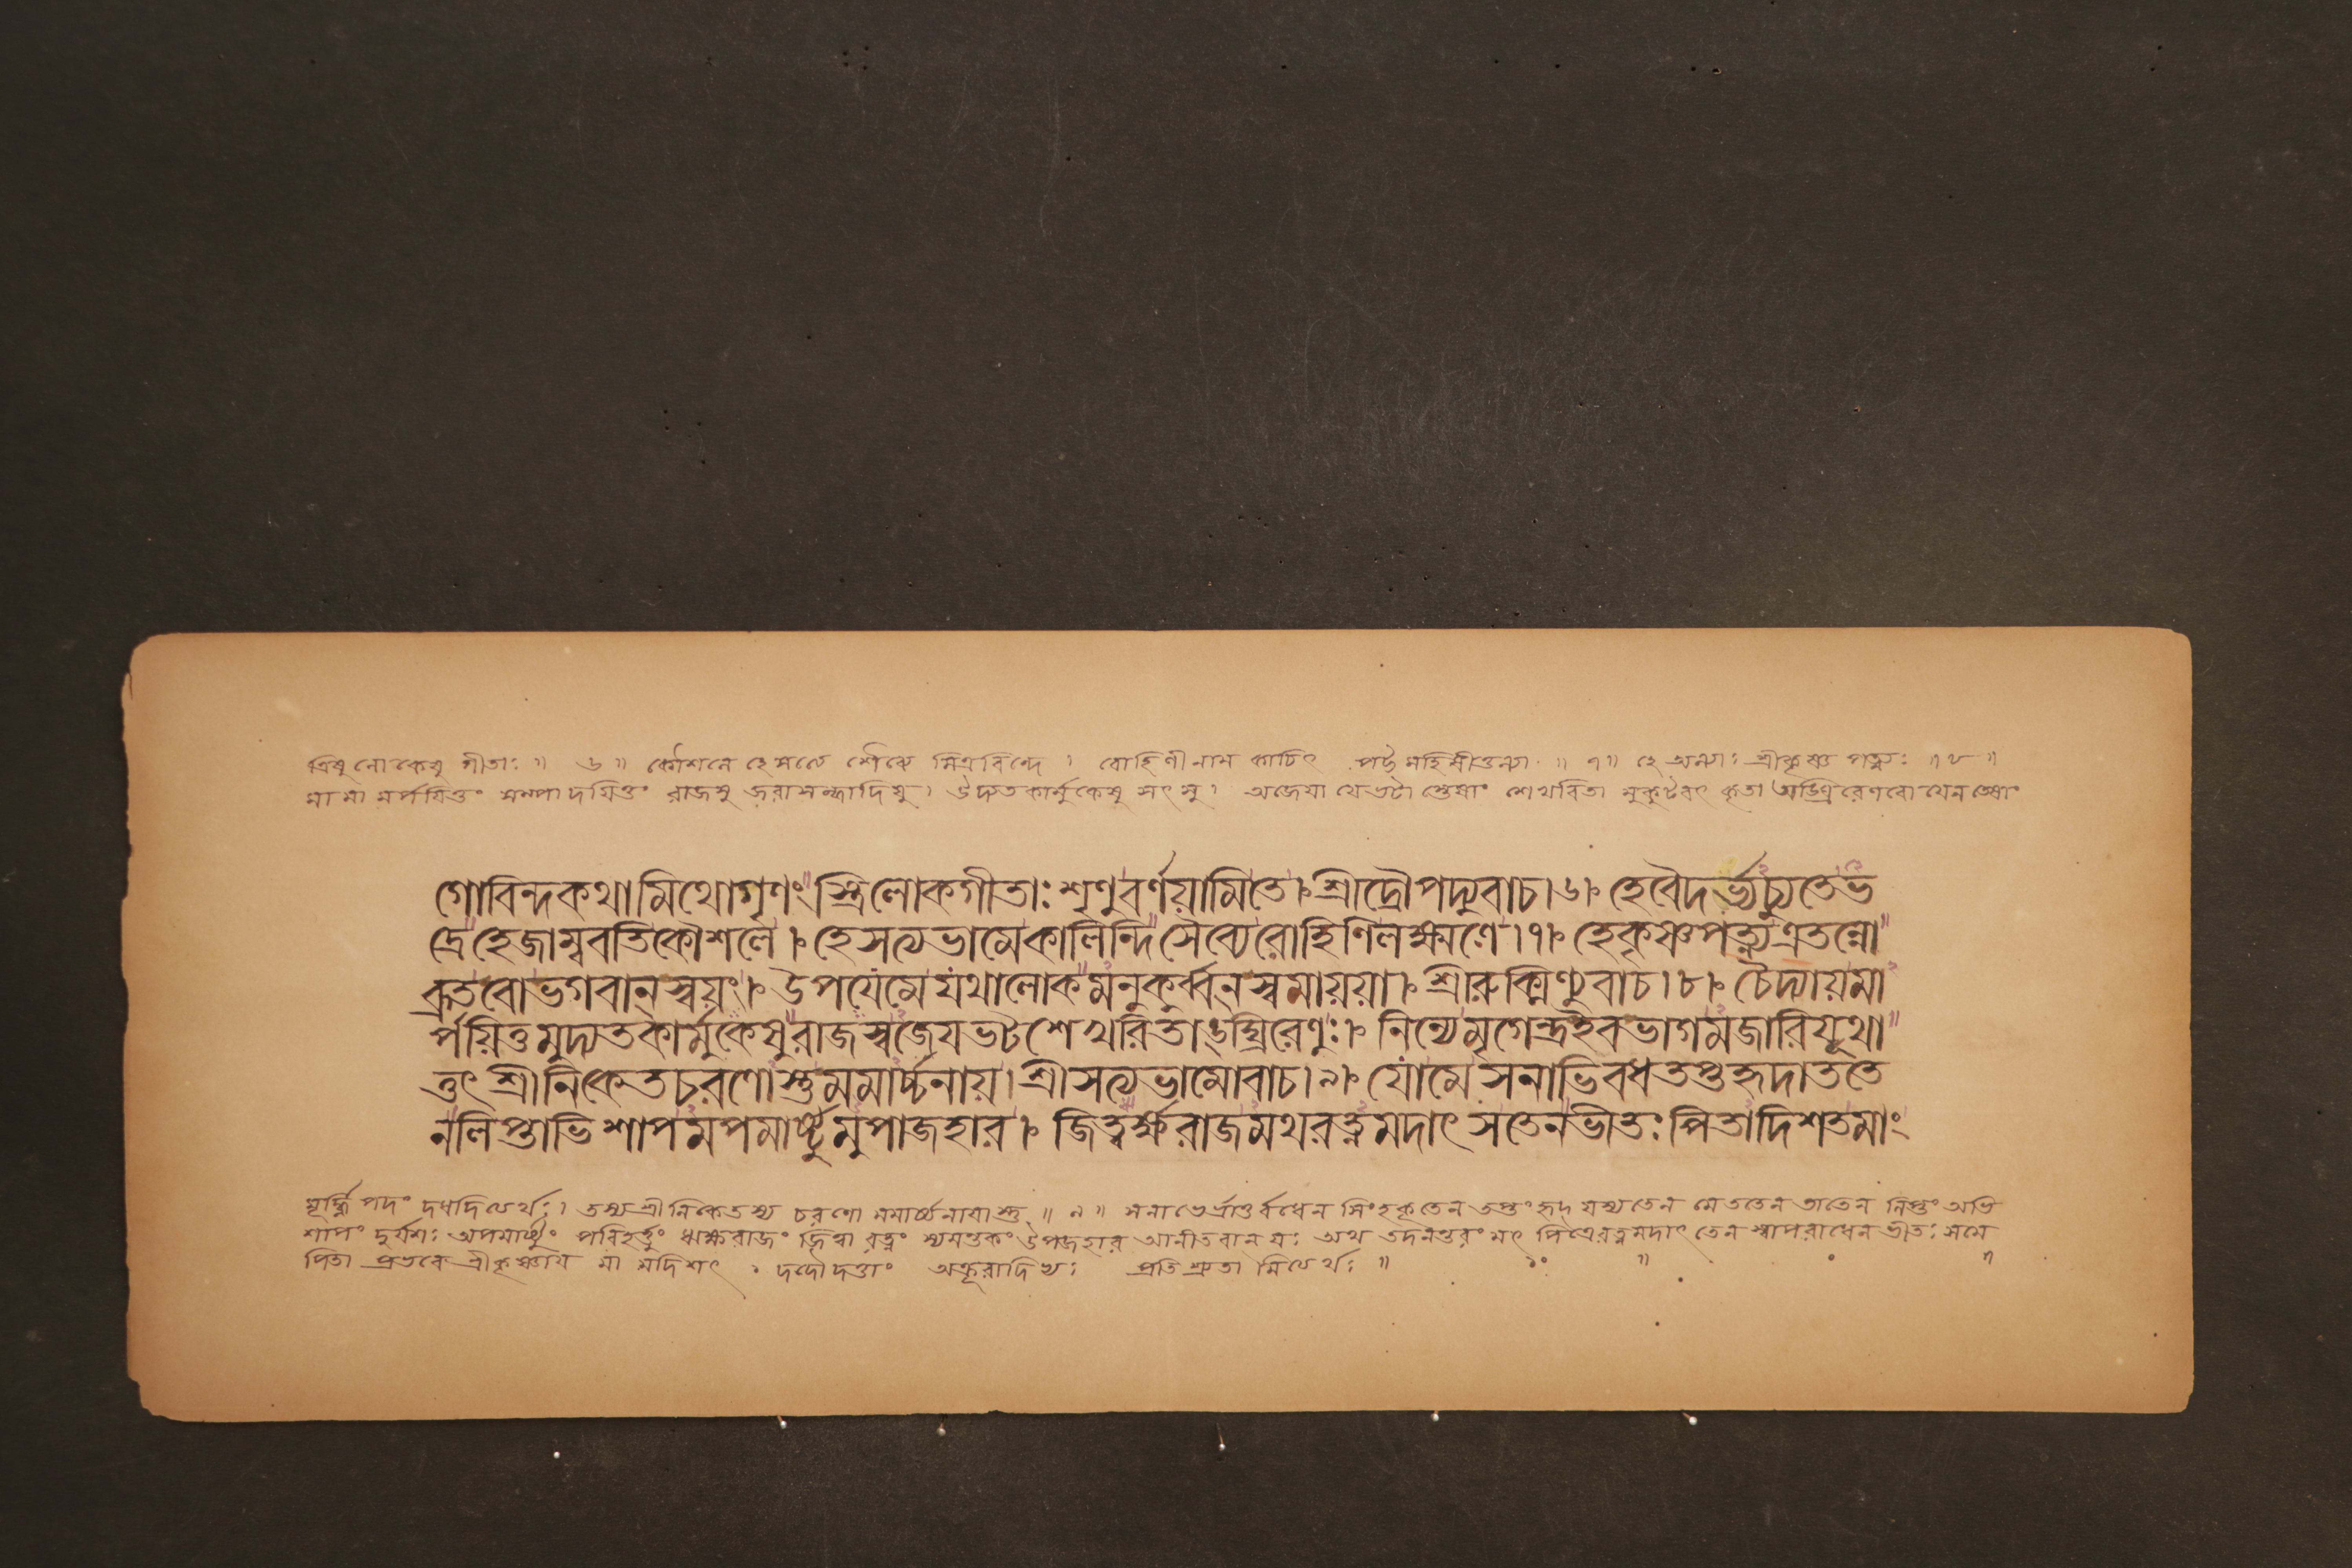 ত্রিষু লোকেষু গীতাঃ ॥ ৬ ॥ কৌশলে হে সত্যে শৈব্যে মিত্রবিন্দে । রোহিণী নাম কাচিৎ পট্টমহিষীতুল্যা ॥ ৭ ॥ হে অন্যাঃ শ্রীকৃষ্ণ পত্ন্যঃ ॥ ৮ ॥
মা মামর্পয়িতুং সম্পাদয়িতুং রাজসু জরাসন্ধাদিষু । উদ্যতকার্মুকেষু সৎসু । অজেয়া যে ভটাস্তেষাং শেখরিতা মুকুটবৎ কৃতা অঙ্ঘ্রিরেণবো যেন তেষাং
গোবিন্দকথামিথোগৃণংস্ত্রিলোকগীতাঃশৃণুবর্ণয়ামিতে।শ্রীদ্রৌপদ্যুবাচ।৬। হেবৈদর্ভ্যচ্যুতেভ
দ্রেহেজাম্ববতিকৌশলে। হেসত্যভামেকালিন্দিসৈব্যেরোহিণিলক্ষ্মণে।৭। হেকৃষ্ণপত্ন্যএতন্নো
ব্রুতবোভগবান্স্বয়ং। উপযেমেযথালোকমনুকুর্ব্বন্স্বমায়য়া। শ্রীরুক্মিণ্যুবাচ।৮। চৈদ্যায়মা
র্পয়িতুমুদ্যতকার্মুকেষুরাজস্বজেযভটশেখরিতাঙ্ঘ্রিরেণুঃ। নিন্যেমৃগেন্দ্রইবভাগমজাবিযূথা
ত্তৎ শ্রীনিকেতচরণোস্তুমমার্চ্চনায়।শ্রীসত্যভামোবাচ।৯। যোমেসনাভিবধতপ্তহৃদাততে
নলিপ্তাভিশাপমপমার্ষ্টুমুপাজহার। জিত্বর্ক্ষরাজমথরত্নমদাৎ সতেনভীতঃপিতাদিশতমাং
মূর্দ্ধ্নি পদং দধদিত্যর্থঃ। তস্য শ্রীনিকেতস্য চরণো মমার্চ্চনায়াস্তু ॥ ৯ ॥ সনাভের্ভ্রাতুর্বধেন সিংহকৃতেন তপ্তং হৃদ্ যস্য তেন মে ততেন তাতেন লিপ্তং অভি
শাপং দুর্যশঃ অপমার্ষ্টুং পরিহর্ত্তুং ঋক্ষরাজং জিত্বা রত্নং স্যমন্তকং উপজহার আনীতবান্ যঃ অথ তদনন্তরং মৎ পিত্রে রত্নমদাৎ তেন স্বাপরাধেন ভীতঃ স মে
পিতা প্রভবে শ্রীকৃষ্ণায় মা মদিশৎ । দদৌ দত্তাং অক্রূরাদিভ্যঃ প্রতিশ্রুতা মিত্যর্থঃ ॥